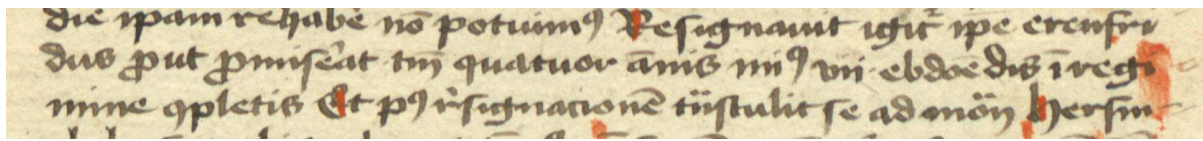 die ipam rehabē nō potuimꝰ Resignauit igit᷑ ipe erenfri
dus ꝓut ꝓmiserat tm̄ quatuor ānis miꝰ vii ebdoēdis ī regi
mine ꝯpletis Et pꝰ rsignacionē tnstulit se ad mōn hersin